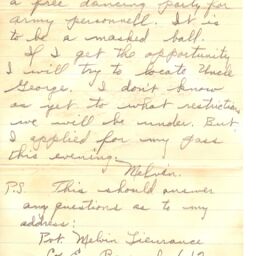 a free dancing party for
army personnell. It is
to be a masked ball.
If I get the opportunity
I will try to locate Uncle
George. I don't know
as yet to what restrictions
we will be under. But
I applied for my pass
this evening.
Melvin.
P.S. This should answer
any questions as to my
address:
Pvt. Melvin
Co.